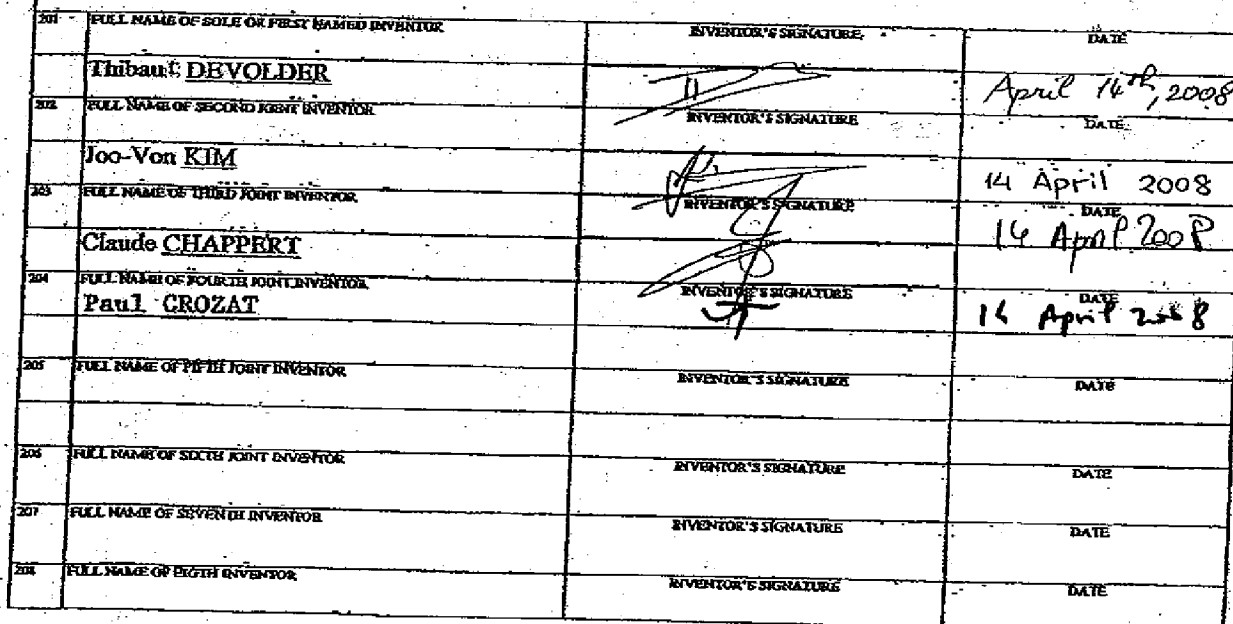 201 FULL NAME OF SOLE OR FIRST NAMED INVENTOR INVENTOR'S SIGNATURE DATE
Thibaut DEVOLDER April 14th, 2008
202 FULL NAME OF SECOND JOINT INVENTOR INVENTOR'S SIGNATURE DATE
Joo-Von KIM 14 April 2008
203 FULL NAME OF THIRD JOINT INVENTOR INVENTOR'S SIGNATURE DATE
Claude CHAPPERT 14 April 2008
204 FULL NAME OF FOURTH JOINT INVENTOR INVENTOR'S SIGNATURE DATE
Paul CROZAT 14 April 2008
205 FULL NAME OF FIFTH JOINT INVENTOR INVENTOR'S SIGNATURE DATE
206 FULL NAME OF SIXTH JOINT INVENTOR INVENTOR'S SIGNATURE DATE
207 FULL NAME OF SEVENTH INVENTOR INVENTOR'S SIGNATURE DATE
208 FULL NAME OF EIGTH INVENTOR INVENTOR'S SIGNATURE DATE